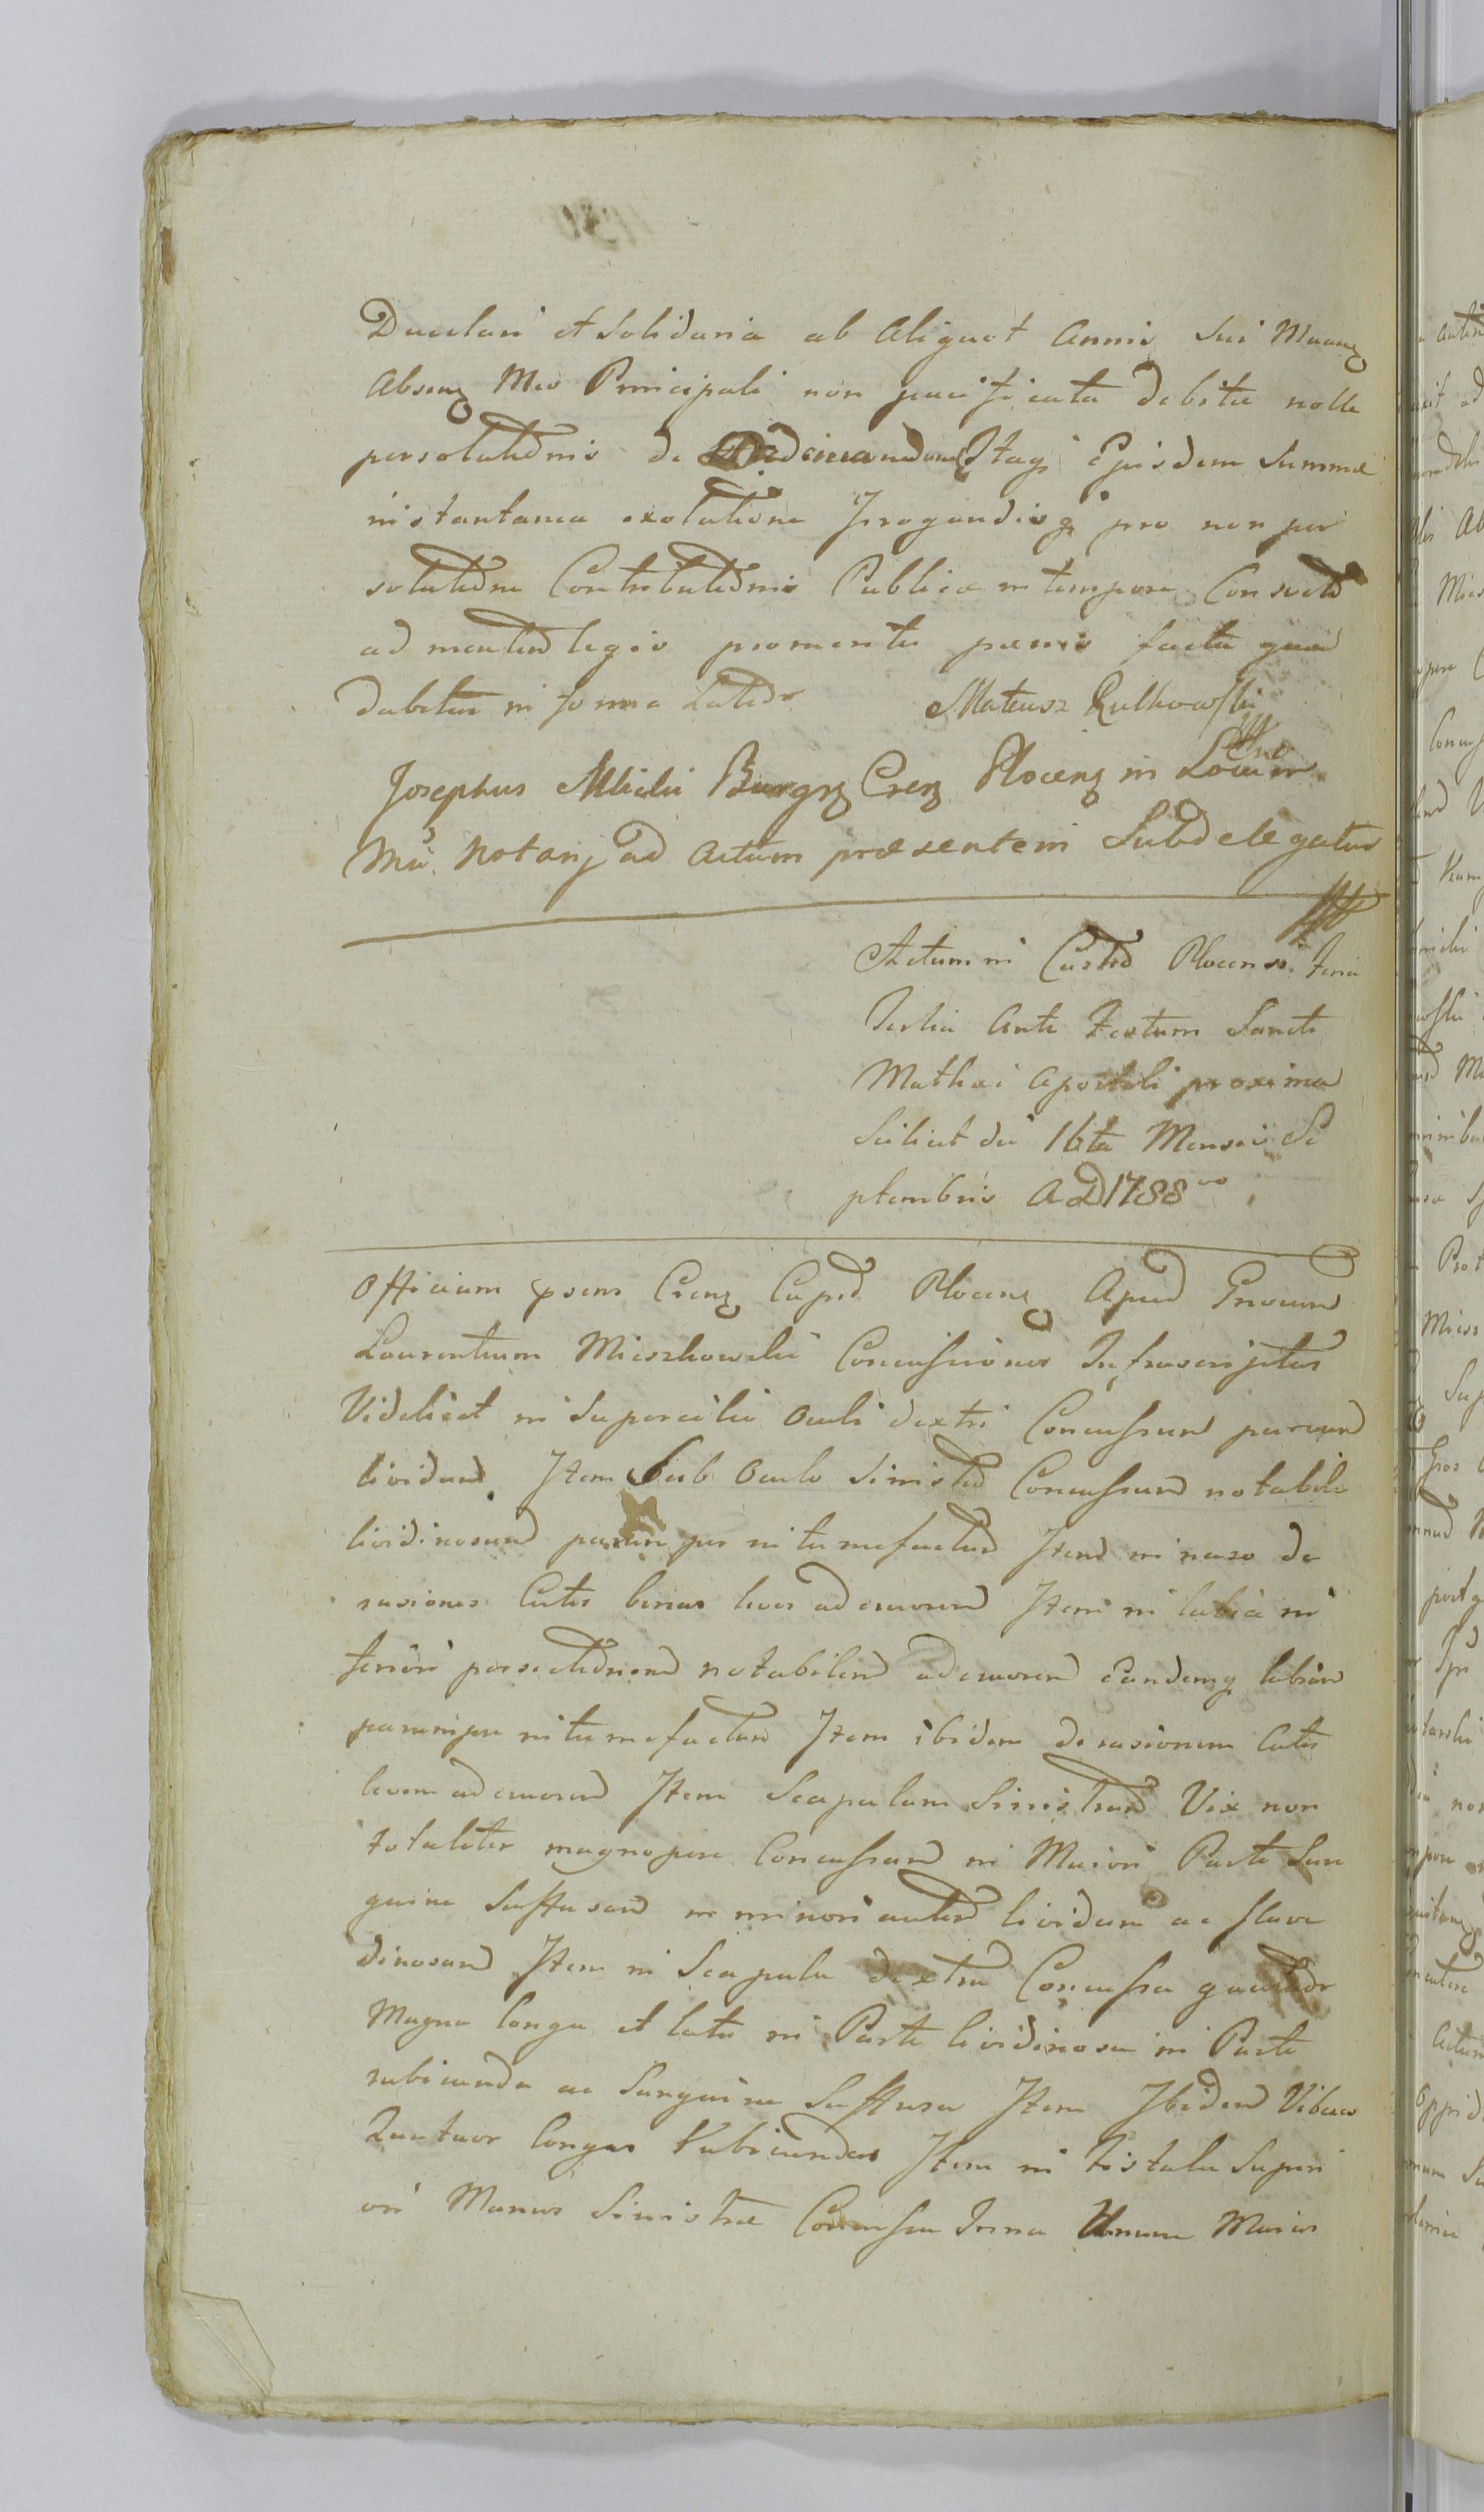 et Solidaria ab Aliquot Annis Sui
Absenȝ Meo Principali non pacificata debitae
persolutionis de Itaqȝ Ejusdem Summae
instantanea exolutione Irrogandisqȝ pro non per
solutione Contributionis Publicae in tempore Consueto
ad mentem legis promeritis paenis facta quae
dabitur in forma Latior Mateusz Rutkowski
Josephus Burgrȝ Crenȝ Plocenȝ in Locum
Notarij ad Actum praesentem Subdelegatus
Actum in Castro Plocensi Feria
Tertia Ante Festum Sancti
Mathaei Apostoli proxima
Scilicet die 16ta Mensis Se
ptembris AD 1788vo.
Officium psens Crenȝ Capit Plocenȝ Apud Gnosum
Laurentium Mieszkowski Concussiones Infrascriptas
Videlicet in Supercilio Oculi dextri Concussum parvum
lividum. Item Sub Oculo Sinistro Concussum notabile
lividinosum parumper intumefactum Item in naso de
rasiones Cutis binas leves ad cruorem Item in labia in
feriori persectionem notabilem ad cruorem eandemqȝ labiam
parumper intumefactam Item ibidem derasionem Cutis
levem ad cruorem Item Scapulam Sinistram Vix non
totaliter magnopere Concussam in Maiori Parte San
guine Suffusam in minori autem lividam ac flave
dinosam Item in Scapula dextra Concussa quatuor
Magna longa et lata in Parte lividinosa in Parte
rubicunda ac Sanguine Suffusa Item Ibidem Vibices
Quatuor longas Rubicundas Item in Fistula Superi
ori Manus Sinistrae Concussa Trina Unum Maius